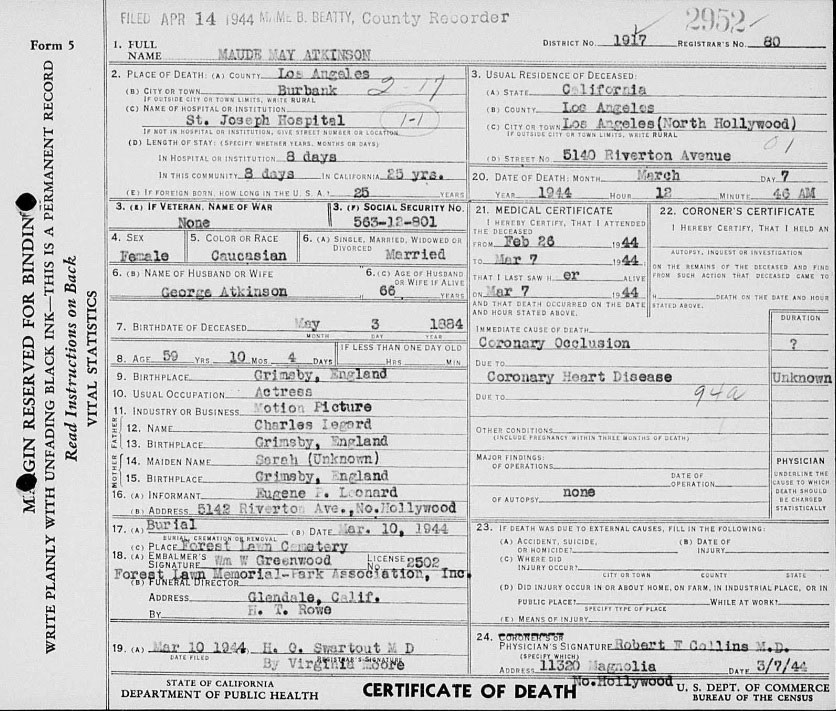 FILED APR 14 1944 MAME B. BEATTY, County Recorder
2952
Form 5
MARGIN RESERVED FOR BINDING
WRITE PLAINLY WITH UNFADING BLACK INK—THIS IS A PERMANENT RECORD
Read Instructions on Back
VITAL STATISTICS
1. FULL NAME MAUDE MAY ATKINSON
DISTRICT NO. 1917 REGISTRAR'S NO. 80
2. PLACE OF DEATH: (A) COUNTY Los Angeles
(B) CITY OR TOWN Burbank 2-17
IF OUTSIDE CITY OR TOWN LIMITS, WRITE RURAL
(C) NAME OF HOSPITAL OR INSTITUTION
St. Joseph Hospital 1-1
IF NOT IN HOSPITAL OR INSTITUTION, GIVE STREET NUMBER OR LOCATION
(D) LENGTH OF STAY: (SPECIFY WHETHER YEARS, MONTHS OR DAYS)
IN HOSPITAL OR INSTITUTION 8 days
IN THIS COMMUNITY 8 days IN CALIFORNIA 25 yrs.
(E) IF FOREIGN BORN, HOW LONG IN THE U. S. A.? 25 YEARS
3. USUAL RESIDENCE OF DECEASED:
(A) STATE California
(B) COUNTY Los Angeles
(C) CITY OR TOWN Los Angeles(North Hollywood)
IF OUTSIDE CITY OR TOWN LIMITS, WRITE RURAL
01
(D) STREET NO. 5140 Riverton Avenue
3. (E) IF VETERAN, NAME OF WAR
None
3. (F) SOCIAL SECURITY NO.
563-12-801
4. SEX
Female
5. COLOR OR RACE
Caucasian
6. (A) SINGLE, MARRIED, WIDOWED OR DIVORCED
Married
6. (B) NAME OF HUSBAND OR WIFE
George Atkinson
6. (C) AGE OF HUSBAND OR WIFE IF ALIVE
66 YEARS
7. BIRTHDATE OF DECEASED May 3 1884
MONTH DAY YEAR
8. AGE 59 YRS 10 MOS. 4 DAYS
IF LESS THAN ONE DAY OLD
HRS. MIN
9. BIRTHPLACE Grimsby, England
10. USUAL OCCUPATION Actress
11. INDUSTRY OR BUSINESS Motion Picture
FATHER
12. NAME Charles Legard
13. BIRTHPLACE Grimsby, England
MOTHER
14. MAIDEN NAME Sarah (Unknown)
15. BIRTHPLACE Grimsby, England
16. (A) INFORMANT Eugene P. Leonard
(B) ADDRESS 5142 Riverton Ave.,No.Hollywood
17. (A) Burial (B) DATE Mar. 10, 1944
BURIAL, CREMATION OR REMOVAL
(C) PLACE Forest Lawn Cemetery
18. (A) EMBALMER'S SIGNATURE Wm W Greenwood LICENSE NO. 2502
Forest Lawn Memorial-Park Association, Inc.
(B) FUNERAL DIRECTOR
ADDRESS Glendale, Calif.
BY H. T. Rowe
19. (A) Mar 10 1944 H. O. Swartout M D
DATE FILED REGISTRAR'S SIGNATURE
By Virginia Moore
20. DATE OF DEATH: MONTH March DAY 7
YEAR 1944 HOUR 12 MINUTE 46 AM
21. MEDICAL CERTIFICATE
I HEREBY CERTIFY, THAT I ATTENDED THE DECEASED
FROM Feb 26 1944
TO Mar 7 1944
THAT I LAST SAW H er ALIVE
ON Mar 7 1944
AND THAT DEATH OCCURRED ON THE DATE AND HOUR STATED ABOVE.
22. CORONER'S CERTIFICATE
I HEREBY CERTIFY, THAT I HELD AN
AUTOPSY, INQUEST OR INVESTIGATION
ON THE REMAINS OF THE DECEASED AND FIND FROM SUCH ACTION THAT DECEASED CAME TO
H DEATH ON THE DATE AND HOUR STATED ABOVE.
IMMEDIATE CAUSE OF DEATH
Coronary Occlusion
DURATION
?
DUE TO
Coronary Heart Disease
Unknown
DUE TO 94a
OTHER CONDITIONS
(INCLUDE PREGNANCY WITHIN THREE MONTHS OF DEATH)
MAJOR FINDINGS:
OF OPERATIONS
DATE OF OPERATION
OF AUTOPSY none
PHYSICIAN
UNDERLINE THE CAUSE TO WHICH DEATH SHOULD BE CHARGED STATISTICALLY
23. IF DEATH WAS DUE TO EXTERNAL CAUSES, FILL IN THE FOLLOWING:
(A) ACCIDENT, SUICIDE, OR HOMICIDE?
(B) DATE OF INJURY
(C) WHERE DID INJURY OCCUR?
CITY OR TOWN COUNTY STATE
(D) DID INJURY OCCUR IN OR ABOUT HOME, ON FARM, IN INDUSTRIAL PLACE, OR IN
PUBLIC PLACE? WHILE AT WORK?
SPECIFY TYPE OF PLACE
(E) MEANS OF INJURY
24. CORONER'S OR
PHYSICIAN'S SIGNATURE Robert F Collins M.D.
(SPECIFY WHICH)
ADDRESS 11320 Magnolia DATE 3/7/44
No.Hollywood
STATE OF CALIFORNIA
DEPARTMENT OF PUBLIC HEALTH
CERTIFICATE OF DEATH
U. S. DEPT. OF COMMERCE
BUREAU OF THE CENSUS